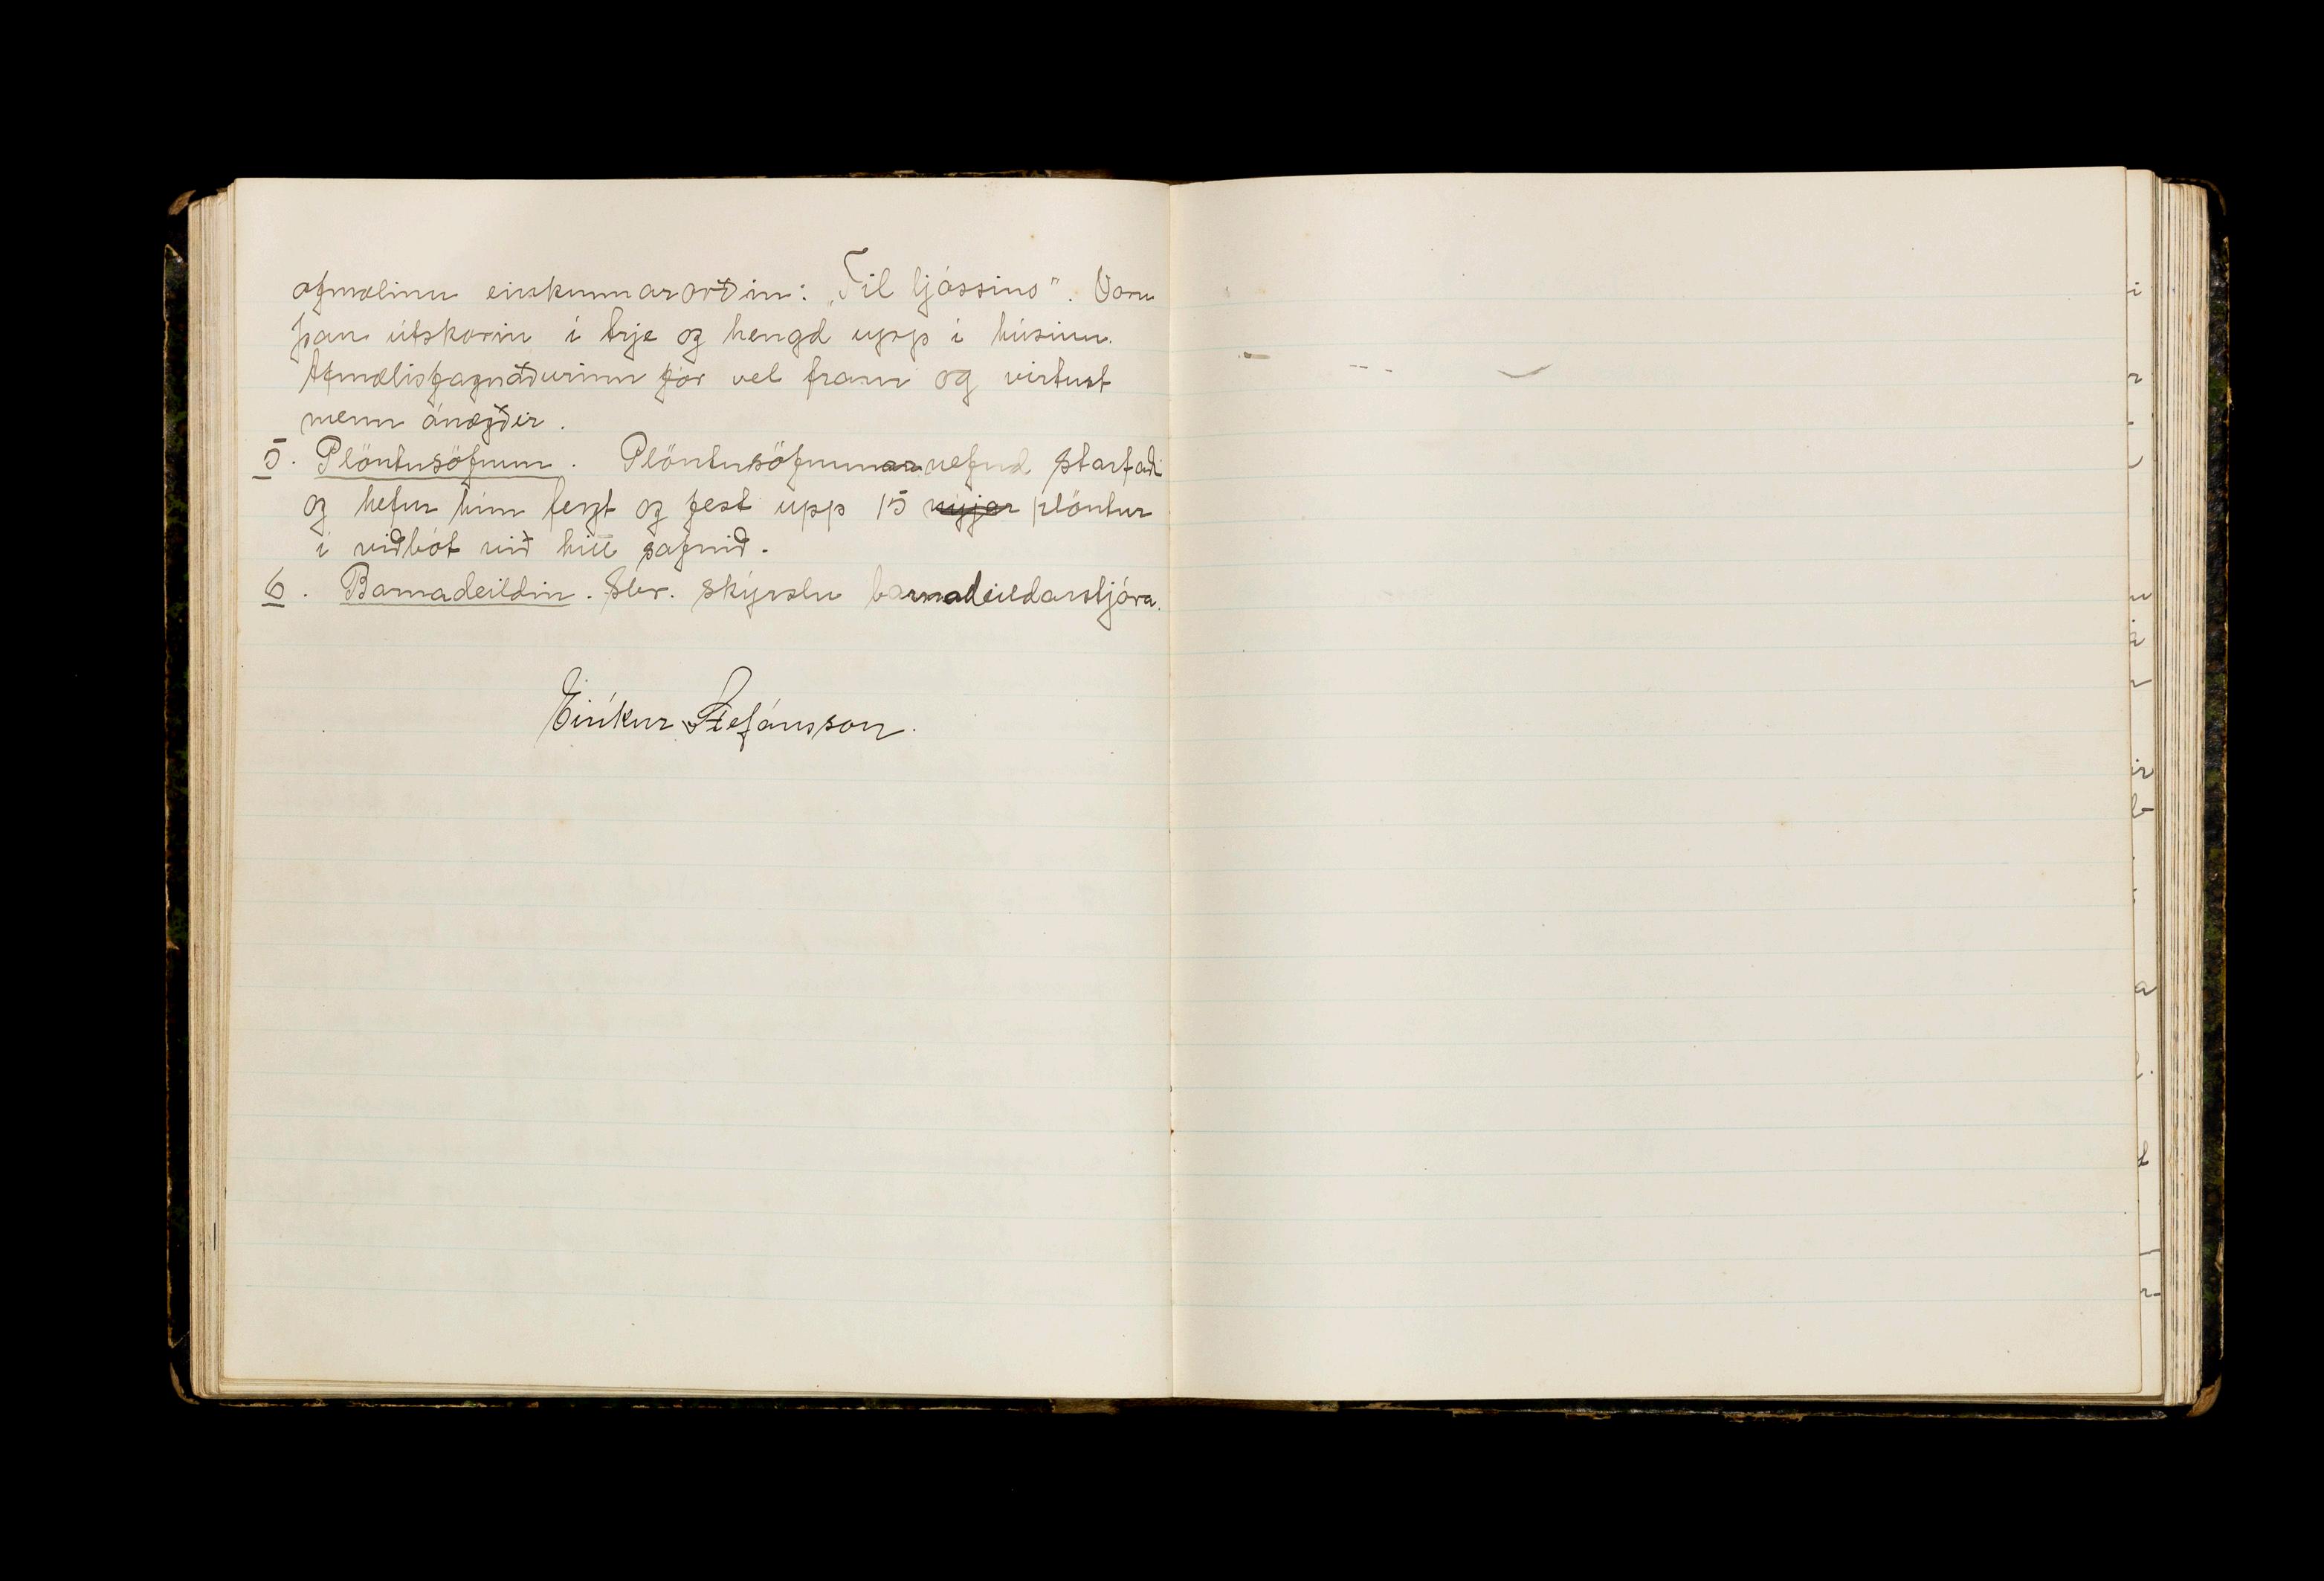 afmælinu einkunnarorðin: „Til ljóssins". Voru
þau útskorin í trje og hengd upp í húsinu.
Afmælisfagnaðurinn fór vel fram og virtust
menn ánægðir.
5. Plöntusöfnun. Plöntusöfnunarnefnd starfaði
og hefur hún fergt og fest upp 15 nýjar plöntur
í viðbót við hitt safnið.
6. Barnadeildin. Sbr. skýrslu barnadeildarstjóra.
Eiríkur Stefánsson.